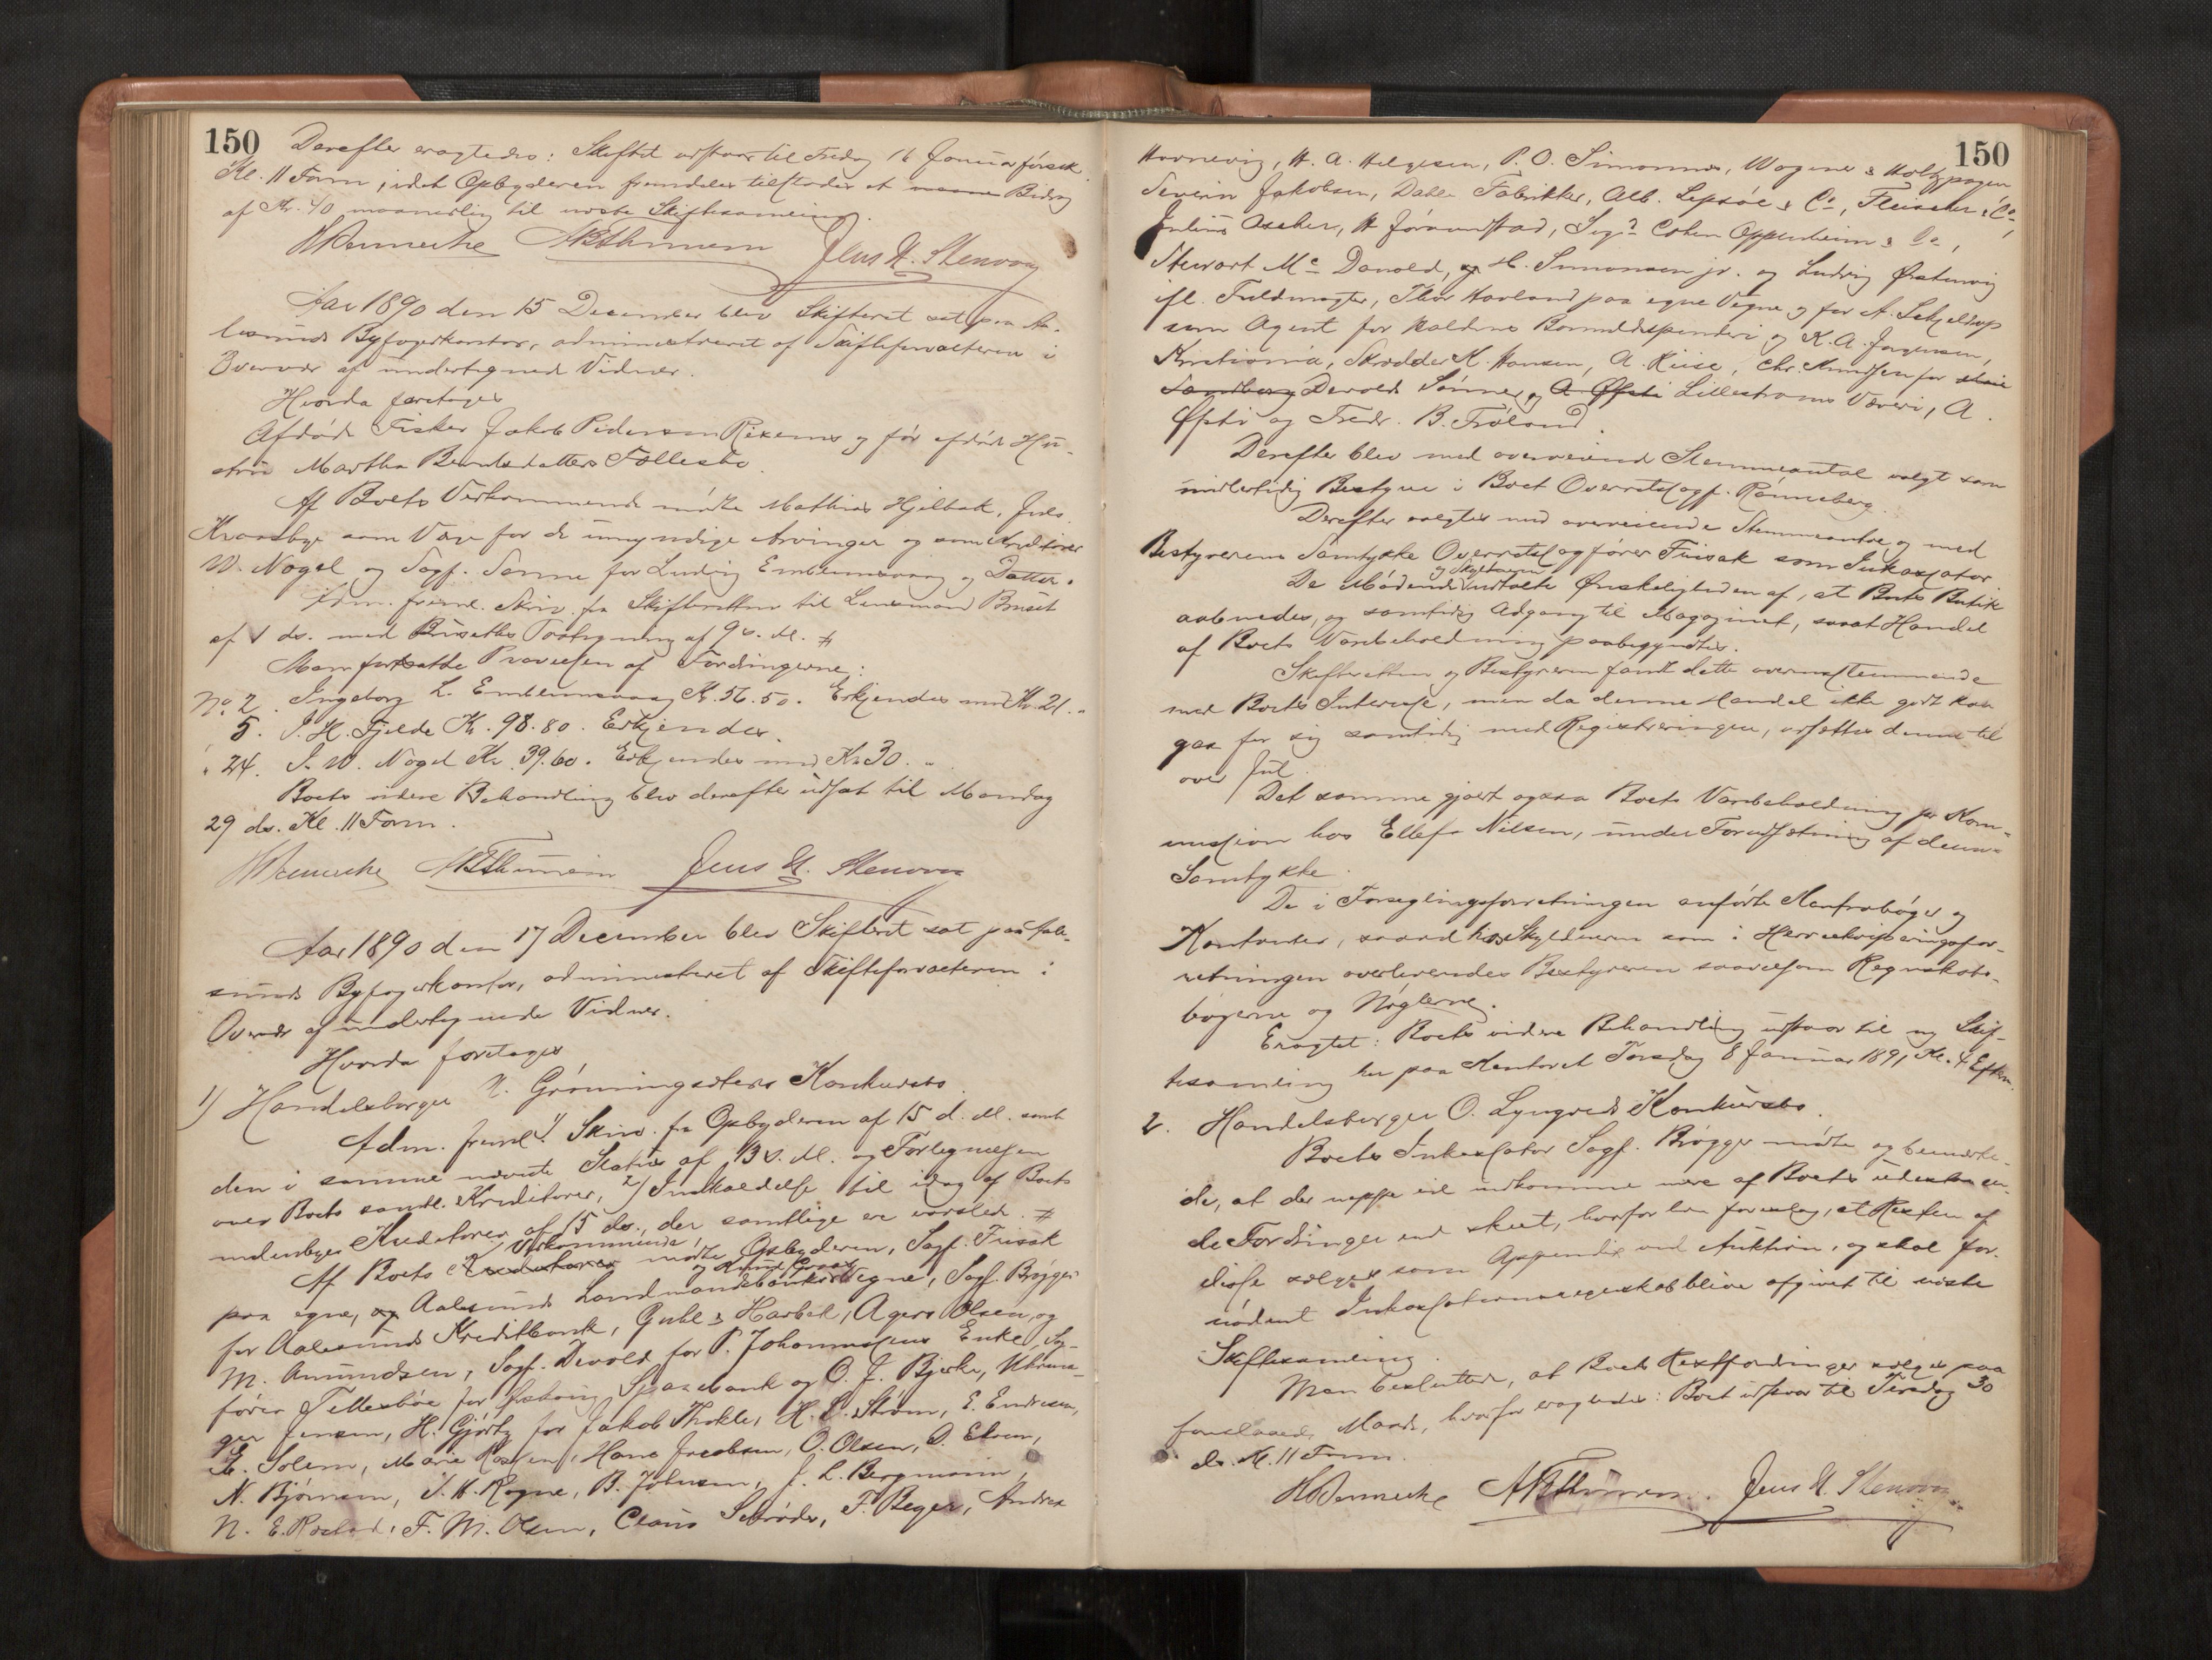 150
Derefter eragtedes: Skiftet udstaar til Fredag 16 Januar førstk.
Kl. 11 Form, idet Opbyderen fremdeles tilstodes et Bidrag
af Kr. 40 maanedlig til næste Skiftesamling.
Jens H. Stenvaag
Aar 1890 den 15 December blev Skifteret sat paa Aa-
lesunds Byfogedkontor, administreret af Skifteforvalteren i
Overvær af undertegnede Vidner.
Hvorda foretoges
Afdøde Fisker Jakob Pedersen og før afdøde Hu-
stru Martha Berntsdatters Fællesbo.
Af Boets Vedkommende mødte Mathias Hjelbak, Jens
som Værge for de umyndige Arvinger og som Kreditorer
W. Nagel og Sagf. for Ludvig Emblemsvaag og Datter.
Adm. freml. Skriv. fra Skifteretten til Lensmand
af 1 ds. med Paategning af 9 s. M. #
Man fortsatte Prøvelsen af Fordringerne:
No 2. Ingeborg L. Emblemsvaag Kr. 56.50. Erkjendes med Kr. 21.
" 5. J. H. Fjelde Kr. 98.80. Erkjendes.
" 24. W. Nagel Kr. 39.60. Erkjendes med Kr 30. "
Boets videre Behandling blev derefter udsat til Mandag
29 ds. Kl. 11 Form.
Jens H. Stenvaag
Aar 1890 den 17 December blev Skifteret sat paa Aale-
sunds Byfogedkontor, administreret af Skifteforvalteren i
Overvær af undertegnede Vidner.
Hvorda foretoges
1) Handelsborger N. Grønningsæters Konkursbo.
Adm. freml. 1) Skriv. fra Opbyderen af 15 d. M. samt
den i samme nævnte Status af 13 s. M. og Fortegnelsen
over Boets samtl. Kreditorer, 2) Indkaldelse til idag af Boets
indenbyes Kreditorer af 15 ds., der samtlige er varslede. #
Af Boets Kreditorer Vedkommende mødte Opbyderen, Sagf. Frisak
paa egne, og Aalesunds Landmandsbanks Vegne, Sagf. Brøgger
for Aalesunds Kreditbank, Harbek, Olsen, og
M. Amundsen, Sagf. Devold for P. Johannessens Enke, Sag-
fører for Sparebank og O. J. Bjerke, Uhrma-
ger Jensen, H. Gjørtz for Jakob Thokle, H. Strøm, E. Endresen,
E. Solem, Marie Hans Jacobsen, O. Olsen,
N. Bjørnsen, Rogne, B. Johnsen, J. L. Bergmann,
N. E. F. M. Olsen, Claus Schrøder, F. Beyer, Andreas
150
H. A. Helgesen, P. O. Simonnæs, Wagener &
Severin Jakobsen, Dale Fabrikker, Alb. Lepsøe & Co, Fleischer & Co,
Julius Ascher, H Cohen Oppenheim & Co,
Stewart Mc Donald, og H. Simonsen jr. og Ludvig Ørstenvig
ifl. Fuldmagter, Thor Havland paa egne Vegne og for A. Schjeldrup
som Agent for Haldens Bomuldsspinderi og K. A. Jørgensen,
Kristiania, Skrædder K. Hansen, A. Riise, Chr. Knudsen for
Sandberg Devolds Sønner, og A Øfsti Lillestrøms Væveri, A.
Øfsti og Fredr. B. Frøland.
Derefter blev med overveiende Stemmeantal valgt som
midlertidig Bestyrer i Boet Overretssagf. Rønneberg.
Derefter valgtes med overveiende Stemmeantal og med
Bestyrerens Samtykke Overretssagfører Frisak som Inkassator.
De Mødende og Skyldneren udtalte Ønskeligheden af, at Boets Butik
aabnedes, og samtidig Adgang til Magazinet, samt Handel
af Boets Varebeholdning paabegyndtes.
Skifteretten og Bestyreren fandt dette overensstemmende
med Boets Interesse, men da denne Handel ikke godt kan
gaa for sig samtidig med Registreringen, udsættes denne til
over Jul.
Det samme gjælder ogsaa Boets Varebeholdning pr Kom-
mission hos Ellef Nilsen, under Forudsætning af dennes
Samtykke.
De i Forseglingsforretningen anførte Contrabøger og
Kontanter, saavel hos Skyldneren som i Herreekviperingsfor-
retningen overleveredes Bestyreren saavelsom Regnskabs-
bøgerne og Nøglerne.
Eragtet: Boets videre Behandling udstaar til ny Skif-
tesamling her paa Kontoret Torsdag 8 Januar 1891, Kl. 4 Efterm.
2. Handelsborger O. Lyngveds Konkursbo.
Boets Inkassator Sagf. Brøgger mødte og bemærke-
de, at der neppe vil indkomme mere af Boets udestaaen-
de Fordringer end skeet, hvorfor han foreslog, at Resten af
disse sælges som Appendix ved Auktion, og skal for-
nødent Inkassationsregnskab blive afgivet til næste
Skiftesamling.
Man besluttede, at Boets Restfordringer sælges paa
foreslaaede Maade, hvorfor eragtedes: Boet udstaar til Tirsdag 30
ds. Kl. 11 Form.
Jens H. Stenvaag